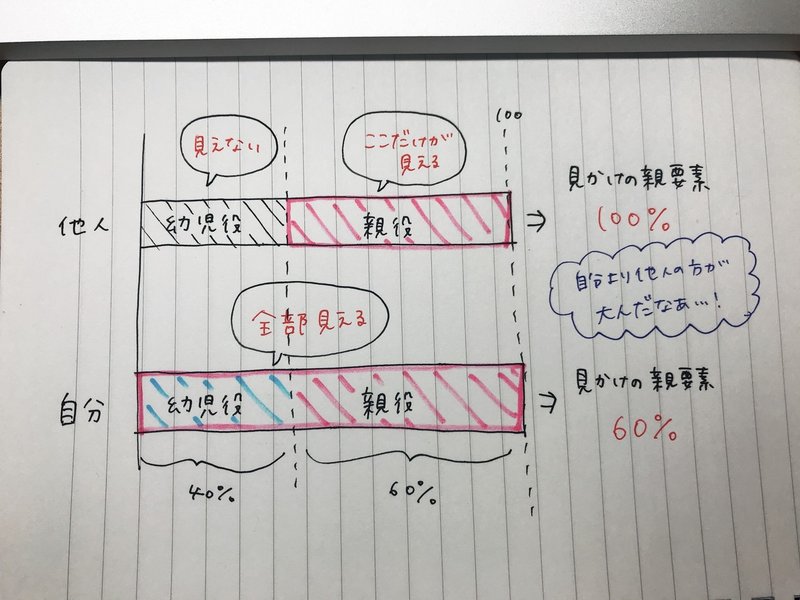 100
見えない
ここだけが
見える
他人
幼児役
親役
⇒
見かけの親要素
100%
自分より他人の方が
大人だなあ…!
全部見える
自分
幼児役
親役
⇒
見かけの親要素
60%
40%
60%